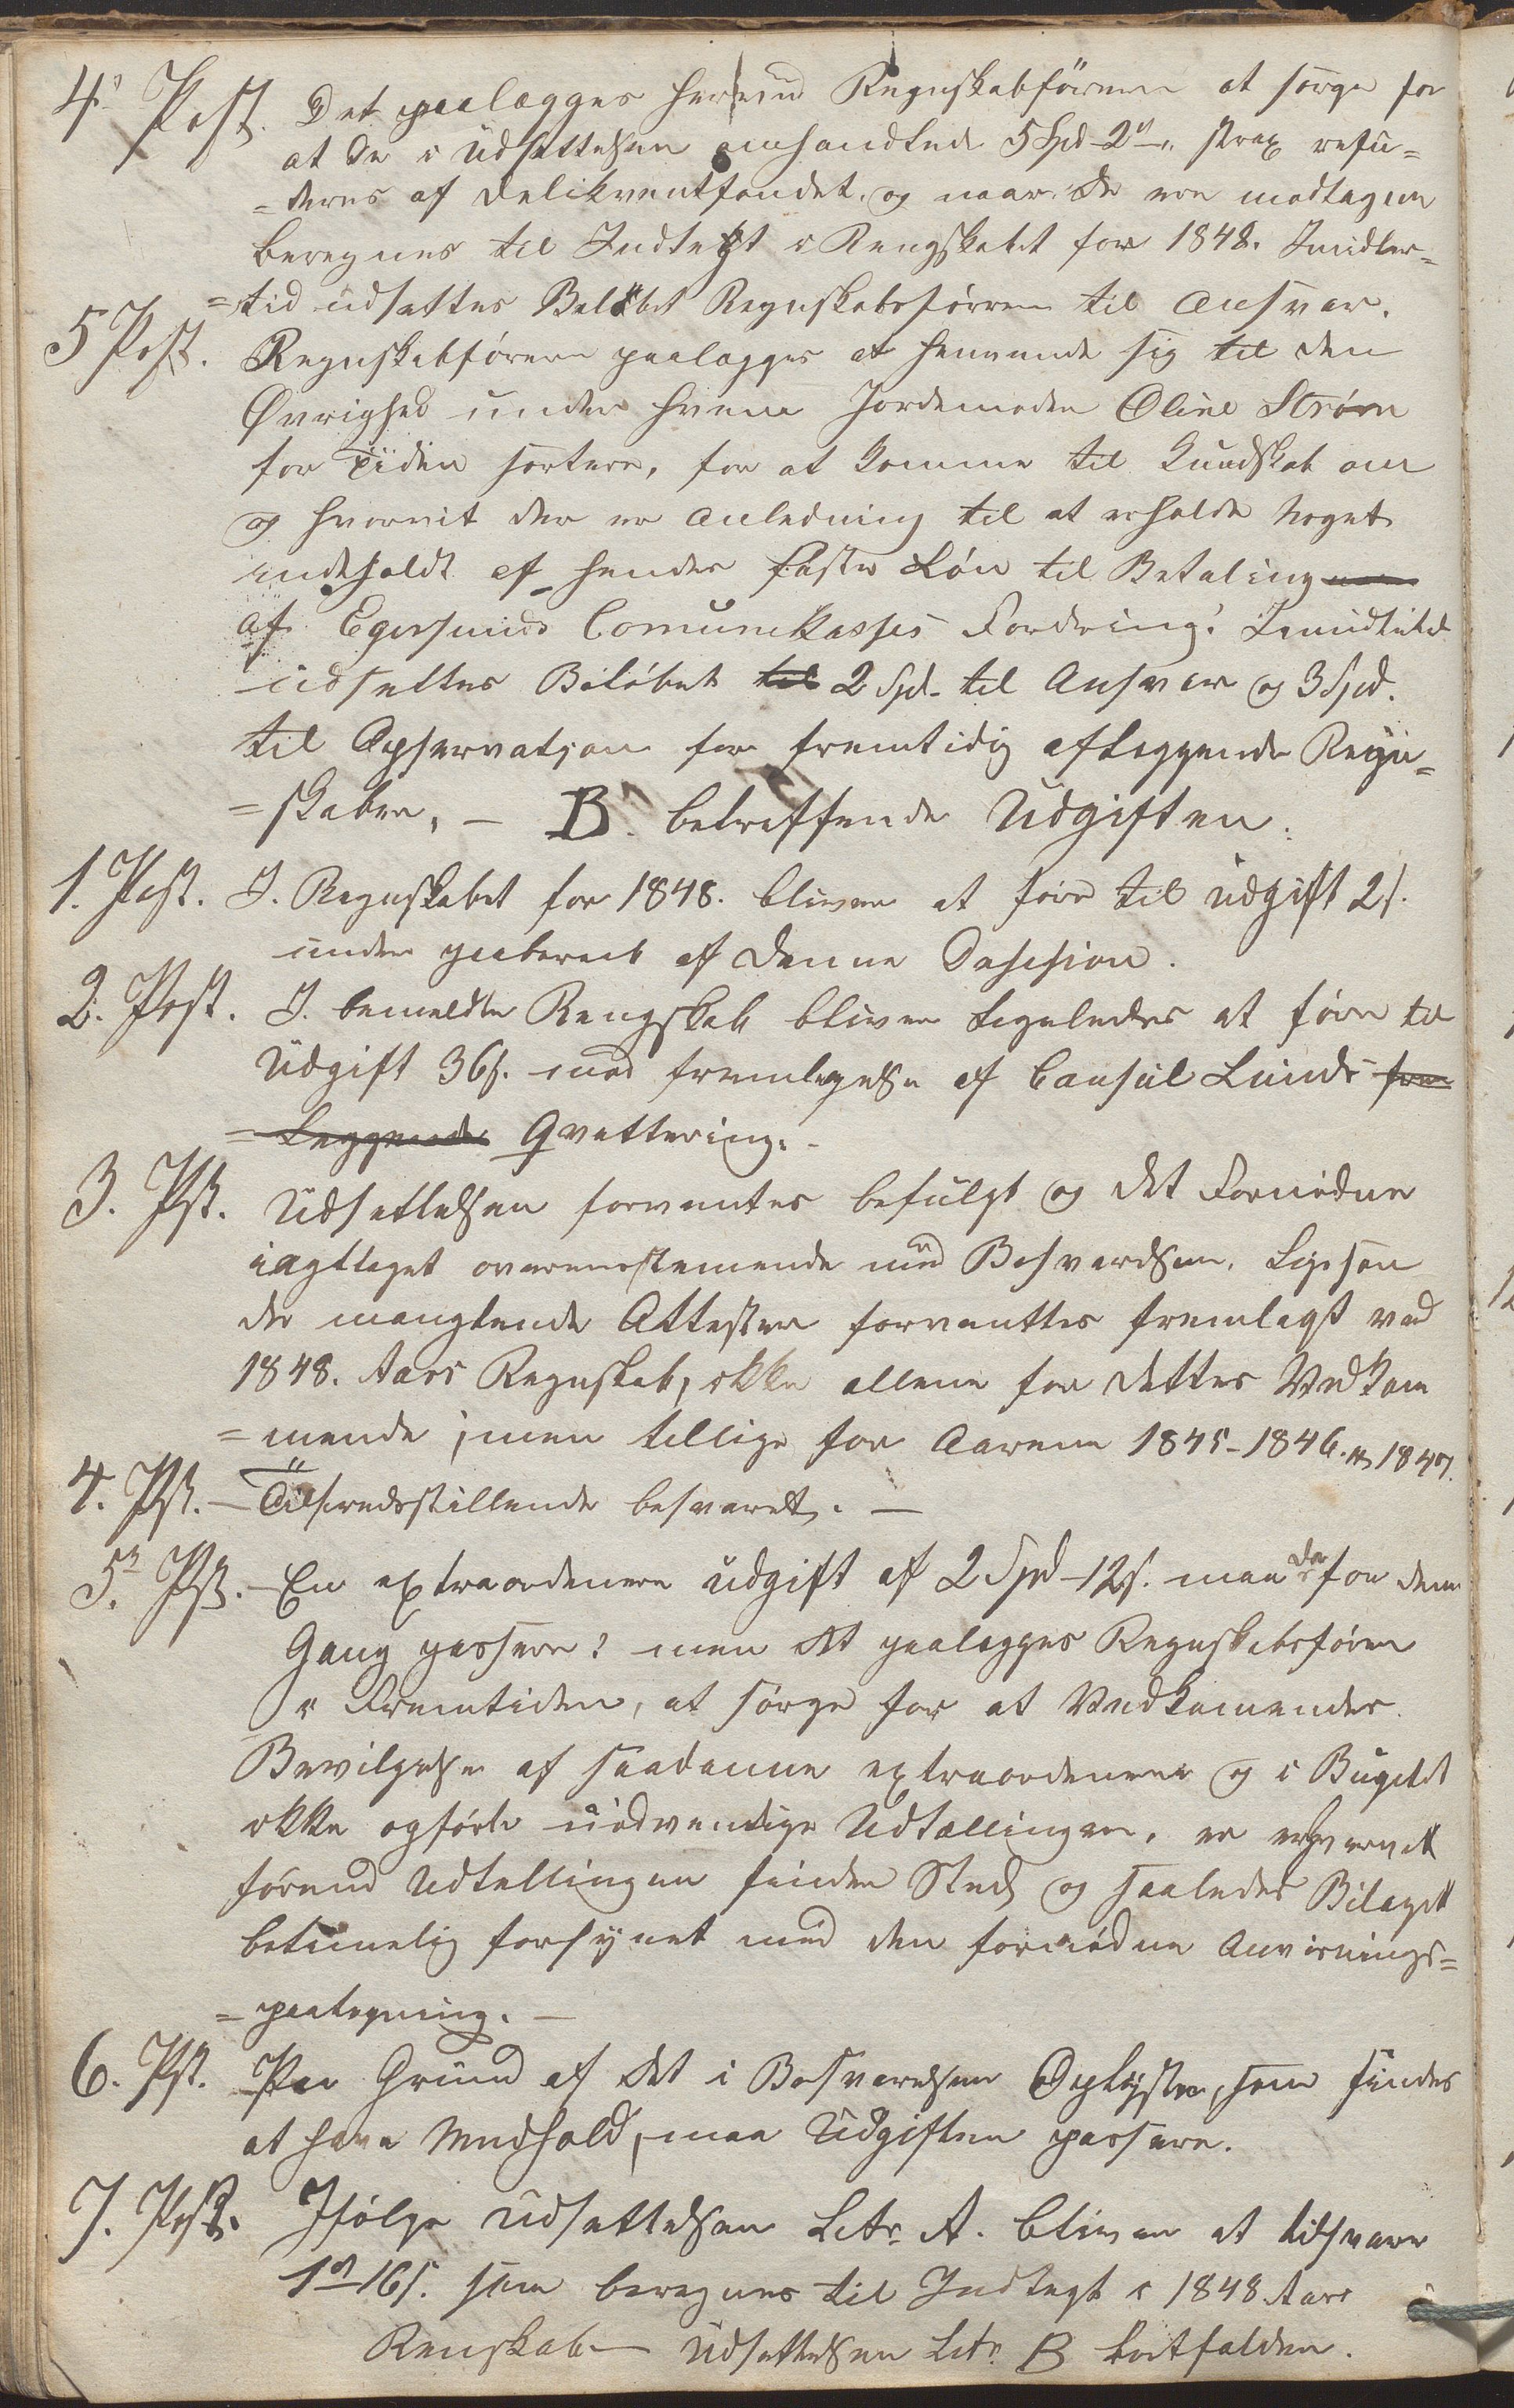 4. Post. Det paalægges herved Regnskabføreren at sørge for
at de i Udsættelsen omhandlede 5 Spd 2 strax refu=
=deres af Delikventfondet, og naar de ere modtagen
beregnes til Indtegt i Rengskabet for 1848. Imidler=
=tid udsættes Beløbet Regnskabsføreren til Ansvar.
5 Post. Regnskabføreren paalægges at henvende sig til den
Øvrighed under hvem Jordemoder Oline Strøm
for Tiden sortere, for at komme til Kundskab om
og hvorvit der er Anledning til at erholde noget
indeholdt af hendes faste Løn til Betaling
af Egersunds Comunekasses Fordring. Imidlertid
udsættes Beløbet til 2 Spd. til Ansvar og 3 Spd.
til Opservatjon for fremtidig aflæggende Regn=
=skaber. – B. betræffende Udgiften.
1. Post. I Regnskabet for 1848. bliver at føre til udgift 2 s.
under paaberaab af denne Desision.
2. Post. I bemeldte Rengskab bliver ligeledes at føre til
Udgift 36 s. med fremlægelse af Consul Lunds frem
=læggende Qvettering. –
3. Pst. Udsættelsen forventes befulgt og det Fornødne
iagttaget overensstemende med Besvarelsen. Ligesom
de manglende Attester forventtes fremlagt ved
1848. Aars Regnskab, ikke allene for dettes Vedkom
=mende, men tillige for Aarene 1845 – 1846. og 1847.
4. Pst. – Tilfredsstillende besvaret. –
5. Pst. – En extraordenere udgift af 2 Spd – 12 s. maa der for denne
Gang passere; men det paalægges Regnskabsføren
i Fremtiden, at sørge for at Vedkomendes
Bevilgelse af saadanne extraordenere og i Bugetet
ikke opførte nødvendige Udtællinger, er erhvervet
førend Udtellingen finder Sted, og saaledes Bilaget
betimelig forsynet med den fornødne Anvisnings=
=paategning. –
6. Pst. Paa Grund af det i Besvarelsen Oplyste, som findes
at have Medhold, maa Udgiften passere.
7. Post. Ifølge Udsættelsen Litr. A. bliver at tilsvare
1 16 s. som beregnes til Indtegt i 1848 Aars
Renskab – Udsættelsen Litr. B bortfalder.